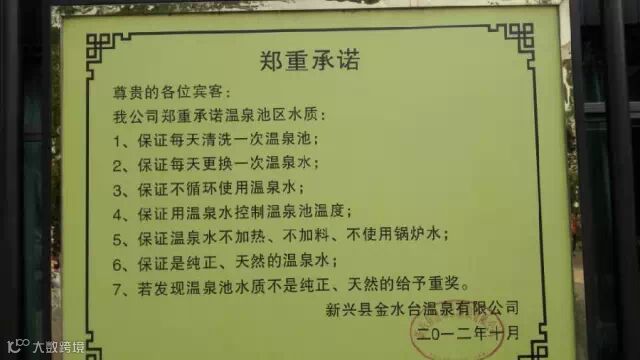 郑重承诺
尊贵的各位宾客：
我公司郑重承诺温泉池区水质：
1、保证每天清洗一次温泉池；
2、保证每天更换一次温泉水；
3、保证不循环使用温泉水；
4、保证用温泉水控制温泉池温度；
5、保证温泉水不加热、不加料、不使用锅炉水；
6、保证是纯正、天然的温泉水；
7、若发现温泉池水质不是纯正、天然的给予重奖。
新兴县金水台温泉有限公司
二〇一二年十月
大数跨境